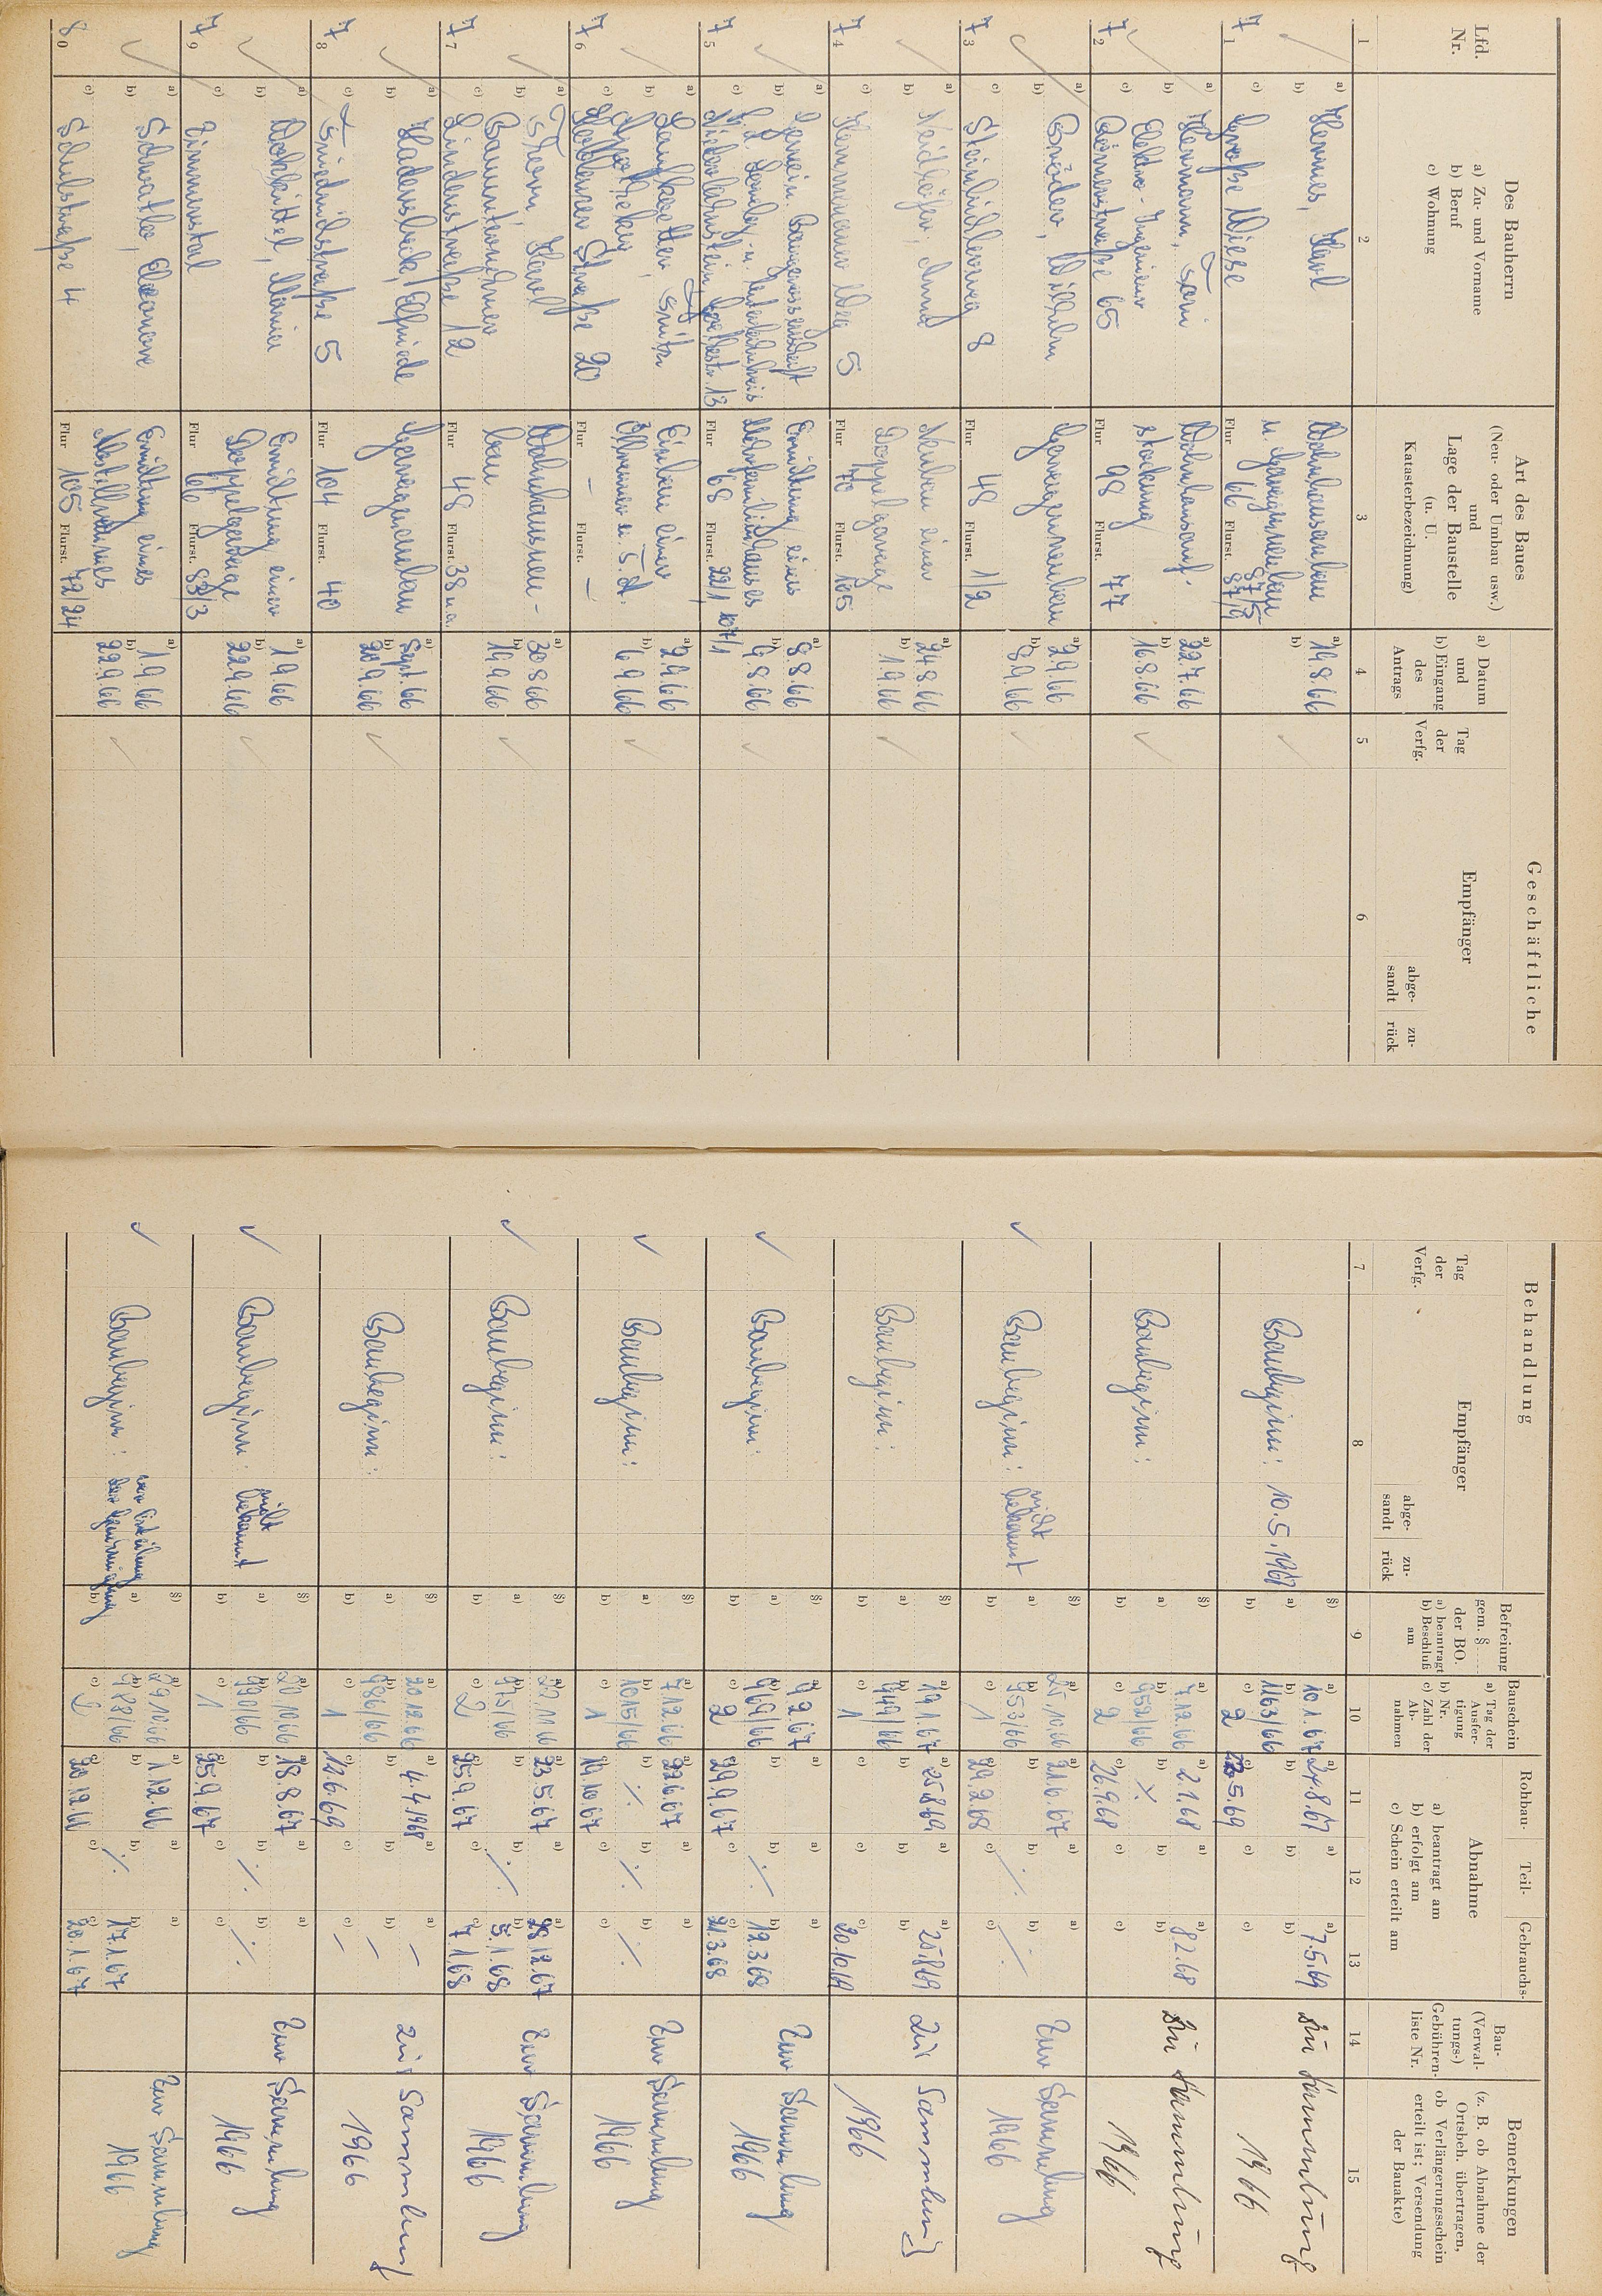 Geschäftliche
Behandlung
Lfd. Nr.
Des Bauherrn
a) Zu- und Vorname
b) Beruf
c) Wohnung
Art des Baues
(Neu- oder Umbau usw.)
und
Lage der Baustelle
(u. U.
Katasterbezeichnung)
a) Datum
und
b) Eingang
des
Antrags
Tag
der
Verfg.
Empfänger
abge-
sandt
zu-
rück
Tag
der
Verfg.
Empfänger
abge-
sandt
zu-
rück
Befreiung
gem. §
der BO.
a) beantragt
b) Beschluß
am
Bauschein
a) Tag der
Ausfer-
tigung
b) Nr.
c) Zahl der
Ab-
nahmen
Rohbau-
Teil-
Gebrauchs-
Abnahme
a) beantragt am
b) erfolgt am
c) Schein erteilt am
Bau-
(Verwal-
tungs-)
Gebühren-
liste Nr.
Bemerkungen
(z. B. ob Abnahme der
Ortsbeh. übertragen,
ob Verlängerungsschein
erteilt ist; Versendung
der Bauakte)
1 2 3 4 5 6 7 8 9 10 11 12 13 14 15
71
a) Hennes, Karl
c) Große Wiese
Wohnhausanbau
u. Garagenneubau
Flur 66 Flurst. 87/3
a) 19.8.66
Baubeginn: 10.5.1967
a) 10.1.67
b) 1163/66
c) 2
a) 24.8.67
a) 7.5.69
Zur Sammlung
1966
72
a) Hermann, Toni
b) Elektro-Ingenieur
c) Römerstraße 65
Wohnhausauf-
stockung
Flur 98 Flurst. 77
a) 22.7.66
b) 16.8.66
Baubeginn:
a) 7.12.66
b) 952/66
c) 2
a) 2.1.68
c) 26.9.68
a) 8.2.68
Zur Sammlung
1966
73
a) Bröder, Wilhelm
c) Steinbüchlerweg 8
Garagenneubau
Flur 48 Flurst. 1/2
a) 2.9.66
b) 8.9.66
Baubeginn: nicht
bekannt
a) 25.10.66
b) 953/66
c) 1
a) 21.6.67
c) 29.2.68
Zur Sammlung
1966
74
a) Neidhöfer, Anna
c) Hermann Weg 5
Neubau einer
Doppelgarage
Flur 70 Flurst. 165
a) 24.8.66
b) 1.9.66
Baubeginn:
a) 19.1.67
b) 949/66
c) 1
a) 25.8.69
a) 25.8.69
c) 20.10.69
Zur Sammlung
1966
75
a) Gemein. Baugenossenschaft
c) Niederlahnstein, 13
Errichtung eines
Mehrfamilienhauses
Flur 68 Flurst. 22/1, 107/1
a) 8.8.66
b) 9.8.66
Baubeginn:
a) 9.2.67
b) 969/66
c) 2
c) 29.9.67
b) 12.3.68
c) 21.3.68
Zur Sammlung
1966
76
b) Apotheker
c) Koblenzer Straße 20
Einbau einer
Ölfeuer
Flur – Flurst. –
a) 2.9.66
b) 6.9.66
Baubeginn:
a) 7.12.66
b) 1015/66
c) 1
a) 22.6.67
c) 19.10.67
Zur Sammlung
1966
77
a) Karl
b) Bauunternehmer
c) Lindenstraße 12
Wohnhausneu-
bau
Flur 48 Flurst. 38 u.a.
a) 30.8.66
b) 19.9.66
Baubeginn:
c) 2
a) 23.5.67
c) 25.9.67
a) 28.12.67
b) 5.1.68
c) 7.1.68
Zur Sammlung
1966
78
a) Hadersbeck, Elfriede
c) Friedrichstraße 5
Garagenanbau
Flur 104 Flurst. 40
a) Sept. 66
b) 20.9.66
Baubeginn:
a) 20.12.66
b) 986/66
c) 1
a) 4.4.1968
c) 12.6.69
Zur Sammlung
1966
79
a) Wohlrittel, Maria
c) Zimmerstal
Errichtung einer
Doppelgarage
Flur 66 Flurst. 83/3
a) 1.9.66
b) 22.9.66
Baubeginn: nicht
bekannt
a) 20.10.66
b) 990/66
c) 1
a) 18.8.67
c) 25.9.67
Zur Sammlung
1966
80
a) Schwatlo, Eleonore
c) Schulstraße 4
Errichtung eines
Abstellraumes
Flur 105 Flurst. 72/24
a) 1.9.66
b) 22.9.66
Baubeginn: vor Erteilung
der Genehmigung
b) 988/66
c) 2
a) 1.12.66
c) 20.12.66
b) 17.1.67
c) 20.1.67
Zur Sammlung
1966